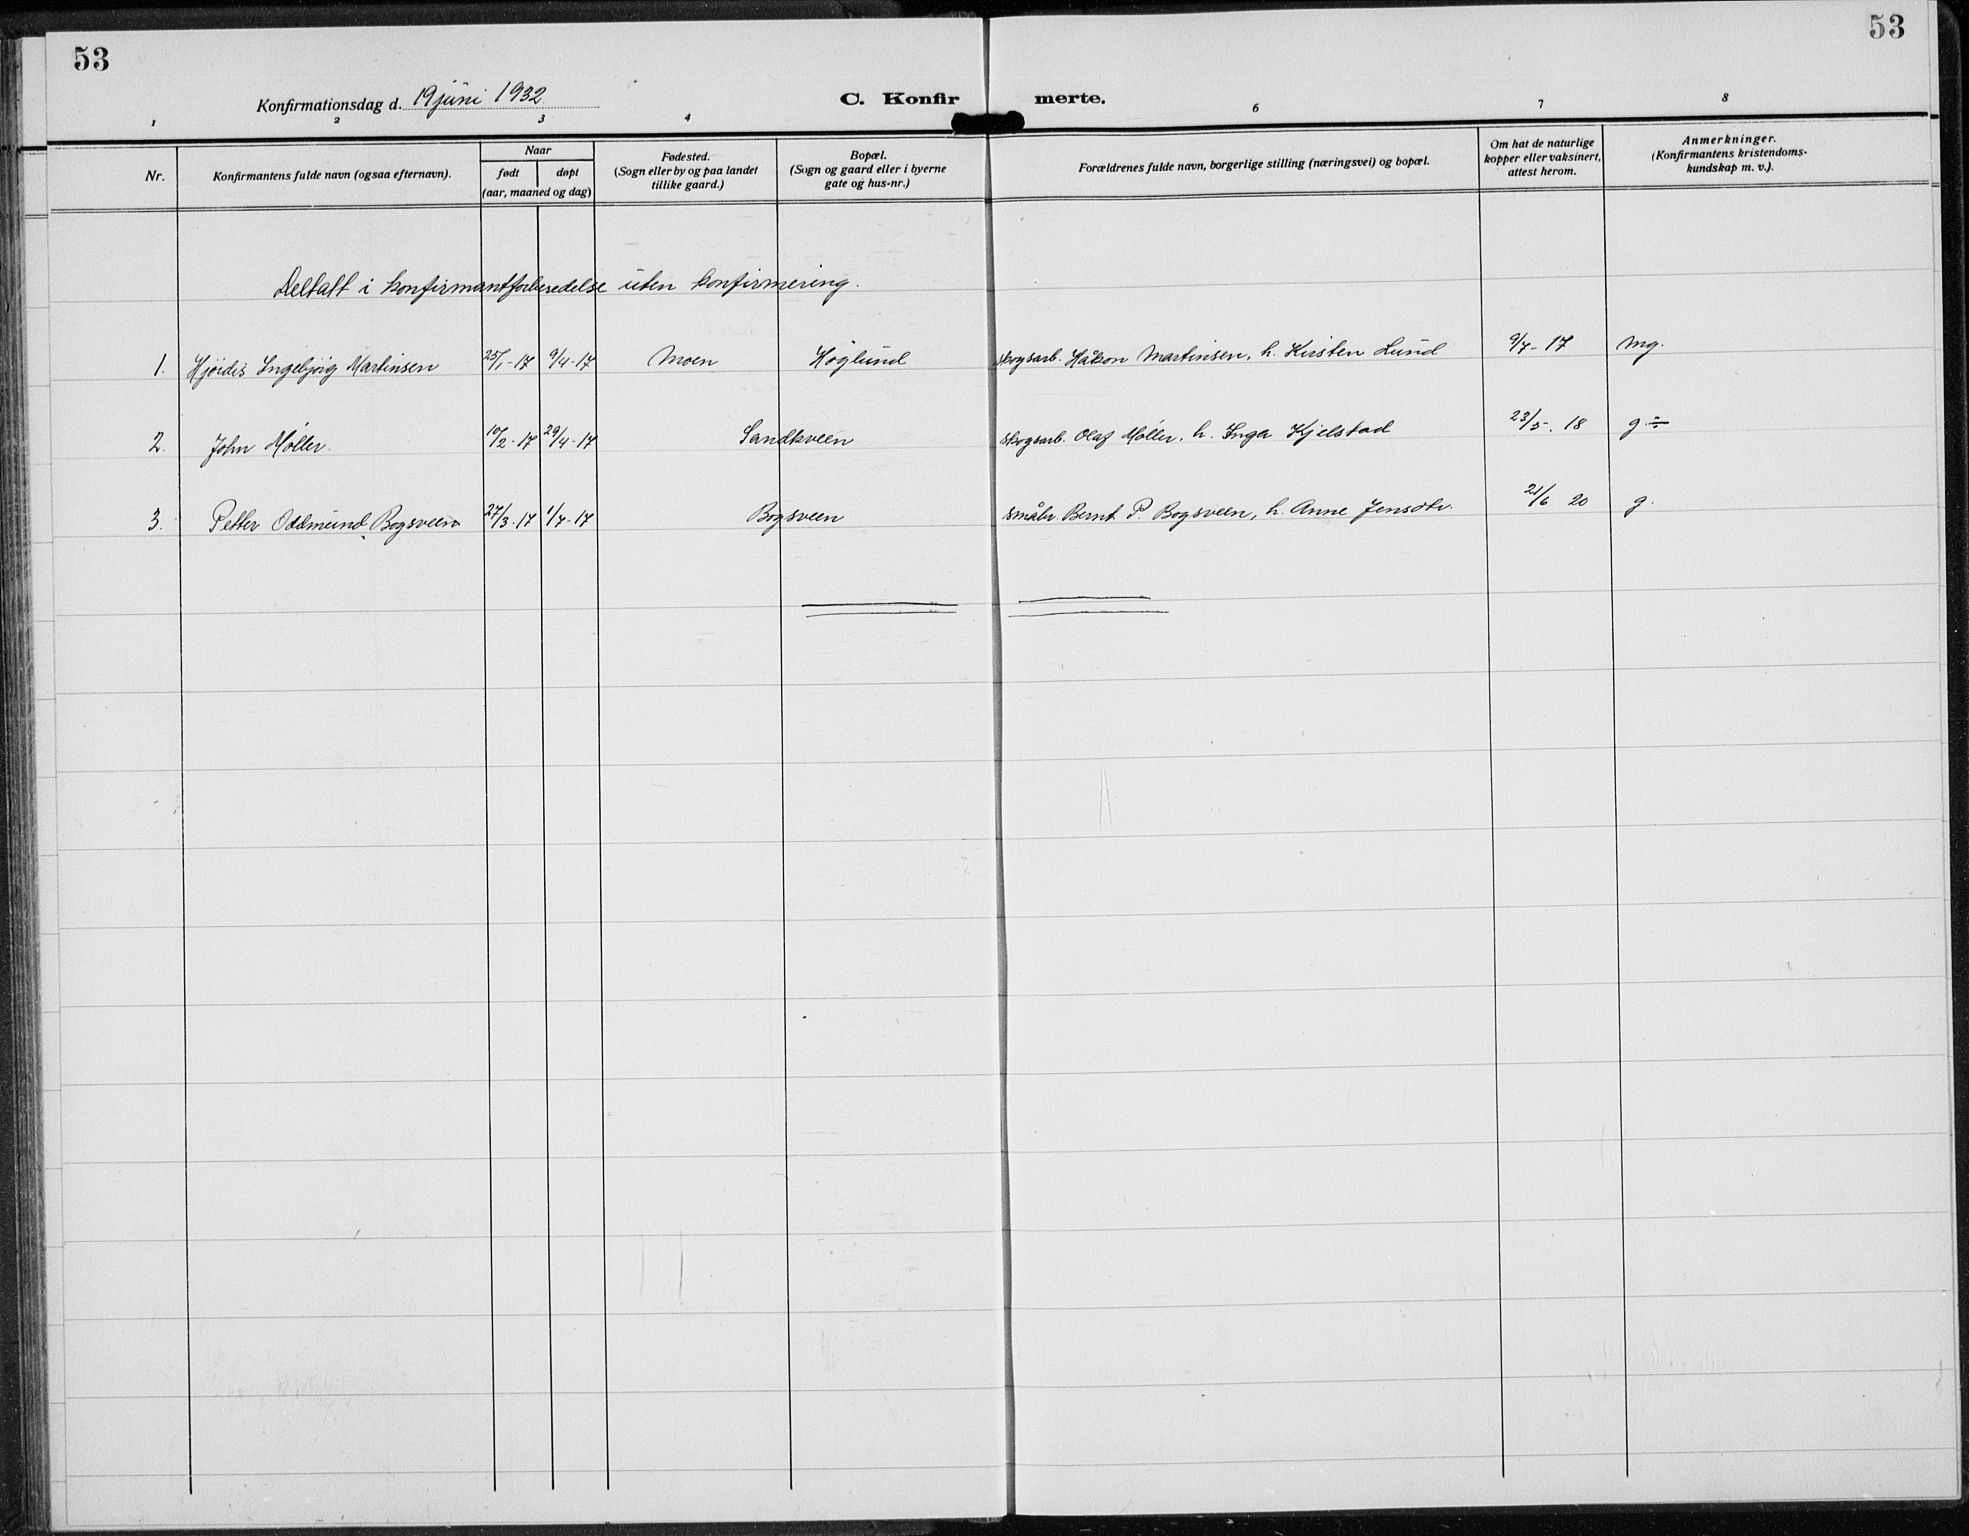 53
53
Konfirmationsdag d. 19 juni 1932
C. Konfirmerte.
1 2 3 4 6 7 8
Nr.
Konfirmantens fulde navn (ogsaa efternavn).
Naar
født døpt
(aar, maaned og dag)
Fødested.
(Sogn eller by og paa landet
tillike gaard.)
Bopæl.
(Sogn og gaard eller i byerne
gate og hus-nr.)
Forældrenes fulde navn, borgerlige stilling (næringsvei) og bopæl.
Om hat de naturlige
kopper eller vaksinert,
attest herom.
Anmerkninger.
(Konfirmantens kristendoms-
kundskap m. v.).
Deltatt i konfirmantforberedelse uten konfirmering.
1. Hjördis Ingebjörg Martinsen 25/1-17 9/4-17 Moen Höglund skogsarb. Håkon Martinsen, h. Kirsten Lund 9/7-17 mg.
2. John Möller. 10/2-17 29/4-17 Sandkveen skogsarb. Olaf Möller, h. Inga Kjelstad 23/5. 18 g ÷
3. Petter Oddmund Bogsveen 27/3-17 1/7-17 Bogsveen småbr Bernt P. Bogsveen, h. Anne Jensdtr. 21/6 20 g.